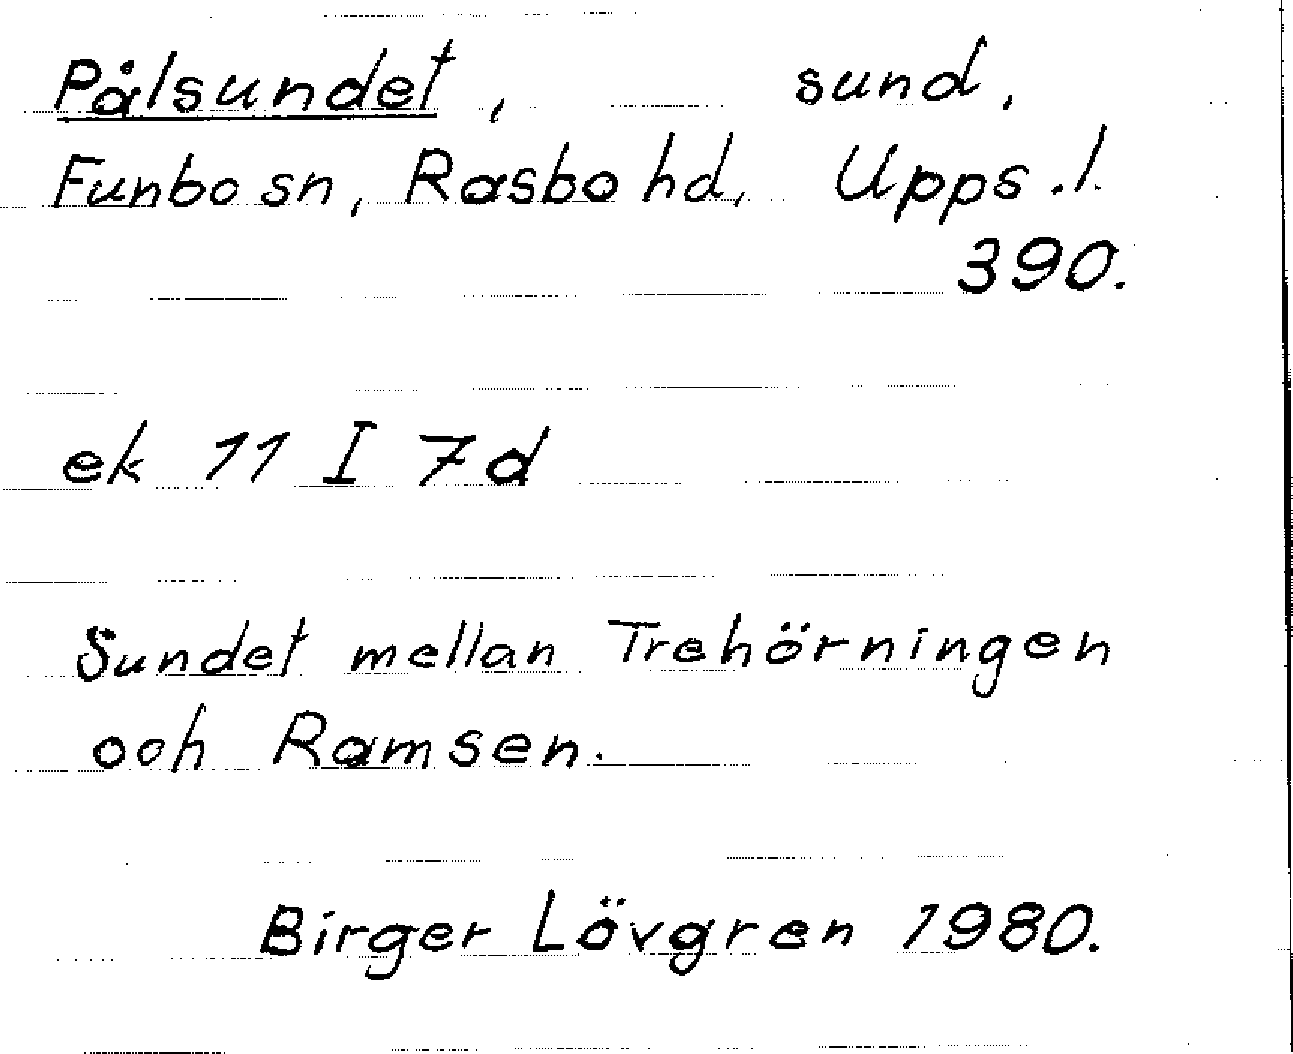 Pålsundet, sund,
Funbo sn, Rasbo hd, Upps.l.
390.
ek 11 I 7d
Sundet mellan Trehörningen
och Ramsen.
Birger Lövgren 1980.